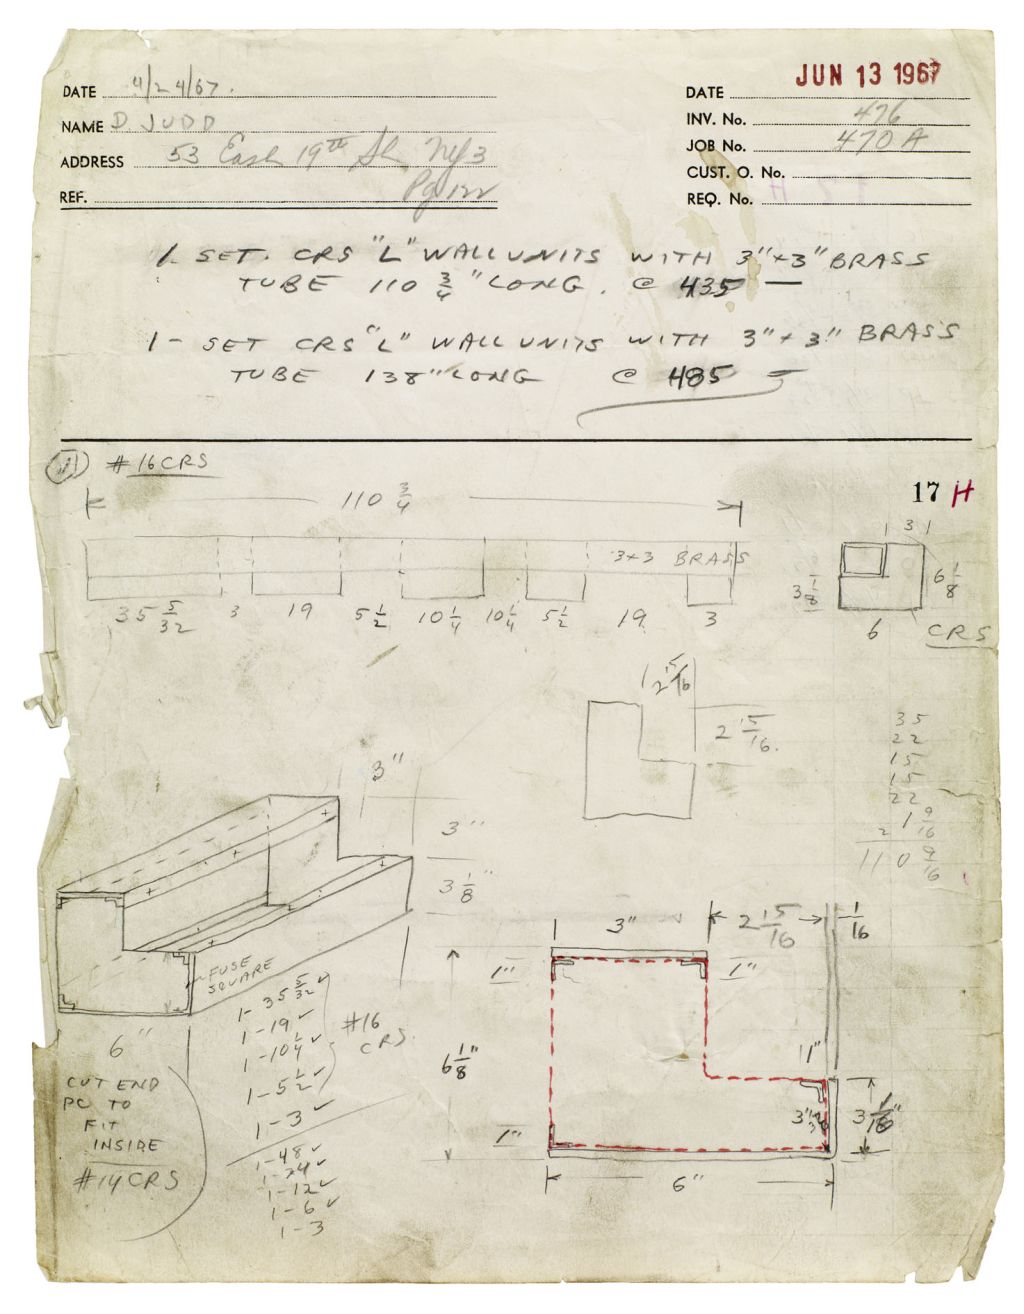 DATE 4/24/67.
NAME D. JUDD
ADDRESS 53 East 19th St, NY 3
REF. Pg 122
DATE JUN 13 1967
INV. No. 476
JOB No. 470 A
CUST. O. No.
REQ. No.
1- SET. CRS "L" WALL UNITS WITH 3"+3" BRASS
TUBE 110 3/4" LONG. @ 435 —
1- SET CRS "L" WALL UNITS WITH 3"+3" BRASS
TUBE 138" LONG @ 485
#16 CRS
17 H
110 3/4
3+3 BRASS
35 5/32 3 19 5 1/2 10 1/4 10 1/4 5 1/2 19 3
3
3 1/8
6 1/8
6
CRS
2 15/16
2 15/16
35
22
15
15
22
1 9/16
2
110 9/16
3"
3"
3 1/8"
FUSE
SQUARE
6"
CUT END
PC TO
FIT
INSIDE
#14 CRS
1- 35 5/32 ✓
1- 19 ✓
1- 10 1/4 ✓
1- 5 1/2 ✓
1- 3 ✓
#16
CRS
1- 48 ✓
1- 24 ✓
1- 12 ✓
1- 6 ✓
1- 3
3"
2 15/16
1/16
1"
1"
6 1/8"
1"
1"
6"